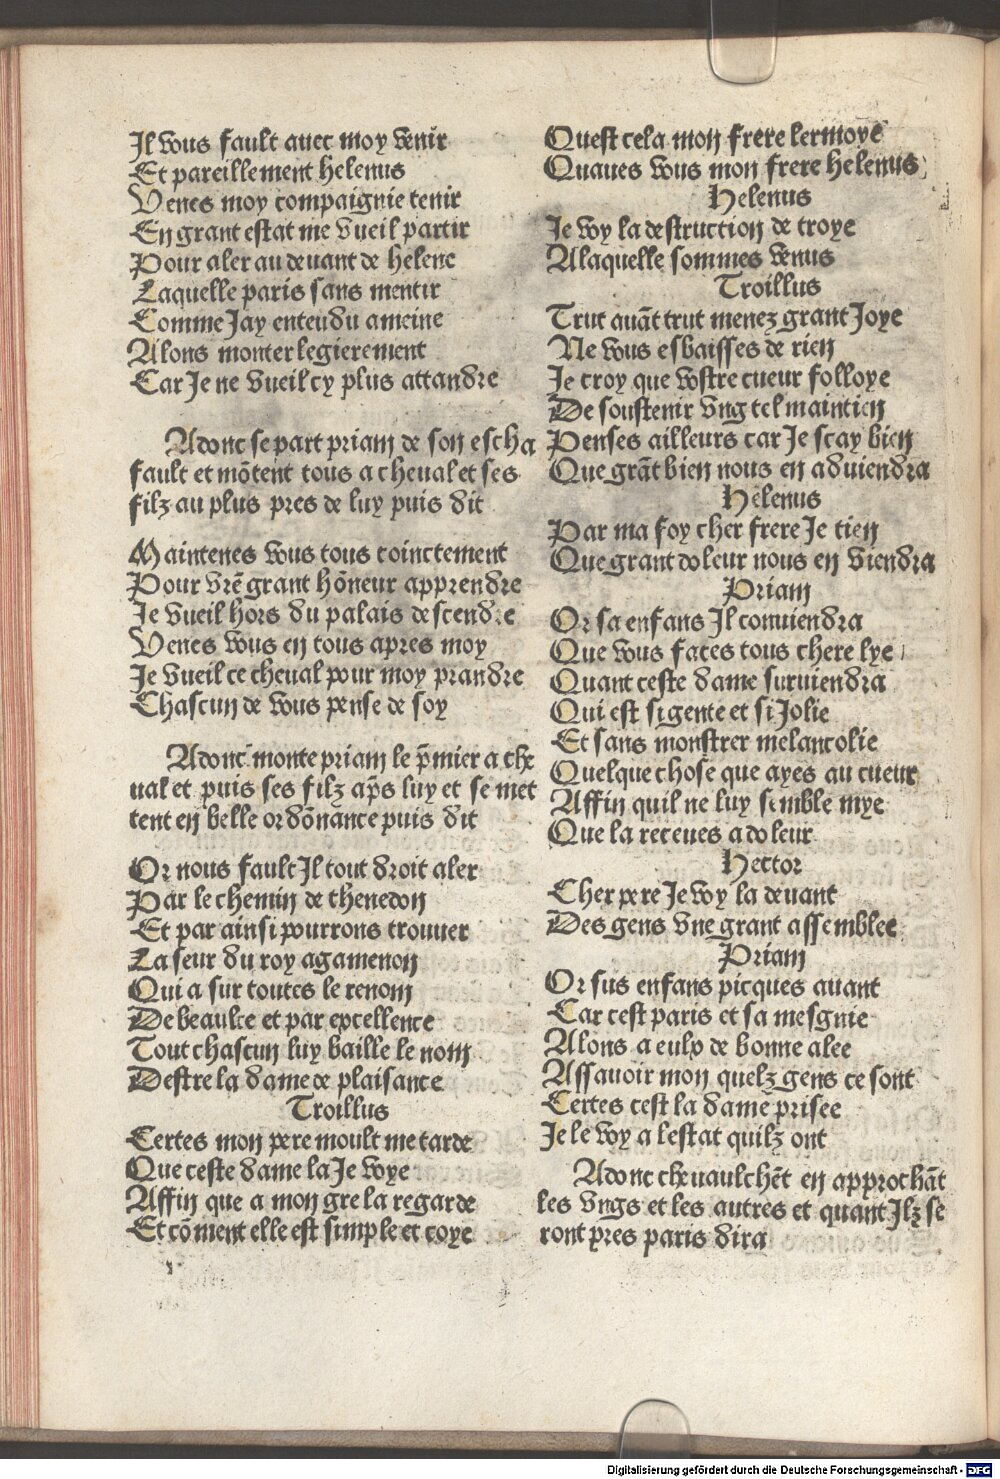 Il vous fault auec moy venir
Et pareillement helenus
Venes moy compaignie tenir
En grant estat me vueil partir
Pour aler au deuant de helene
Laquelle paris sans mentir
Comme Jay entendu ameine
Alons monter legierement
Car Je ne vueil cy plus attandre
Adonc se part priam de son escha
fault et mõtent tous a cheual et ses
filz au plus pres de luy puis dit
Maintenes vous tous coinctement
Pour vr̃e grant hõneur apprendre
Je vueil hors du palais descendre
Venes vous en tous apres moy
Je vueil ce cheual pour moy prandre
Chascun de vous pense de soy
Adonc monte priam le p̃mier a che
ual et puis ses filz ap̃s luy et se met
tent en belle ordõnance puis dit
Or nous fault Il tout droit aler
Par le chemin de thenedon
Et par ainsi pourrons trouuer
La seur du roy agamenon
Qui a sur toutes le renom
De beaulte et par excellence
Tout chascun luy baille le nom
Destre la dame de plaisance
Troillus
Certes mon pere moult me tarde
Que ceste dame la Je voye
Affin que a mon gre la regarde
Et cõment elle est simple et coye
Quest cela mon frere lermoye
Quaues vous mon frere helenus
Helenus
Je voy la destruction de troye
A laquelle sommes venus
Troillus
Trut auãt trut menez grant Joye
Ne vous esbaisses de rien
Je croy que vostre cueur folloye
De soustenir vng tel maintien
Penses ailleurs car Je scay bien
Que grãt bien nous en aduiendra
Helenus
Par ma foy cher frere Je tien
Que grant doleur nous en viendra
Priam
Or sa enfans Il conuiendra
Que vous faces tous chere lye
Quant ceste dame suruiendra
Qui est si gente et si Jolie
Et sans monstrer melancolie
Quelque chose que ayes au cueur
Affin quil ne luy semble mye
Que la receues a doleur
Hector
Cher pere Je voy la deuant
Des gens vne grant assemblee
Priam
Or sus enfans picques auant
Car cest paris et sa mesgnie
Alons a eulx de bonne alee
Assauoir mon quelz gens ce sont
Certes cest la dame prisee
Je le voy a lestat quilz ont
Adonc cheuaulchẽt en approchãt
les vngs et les autres et quant Ilz se
ront pres paris dira
Digitalisierung gefördert durch die Deutsche Forschungsgemeinschaft - DFG